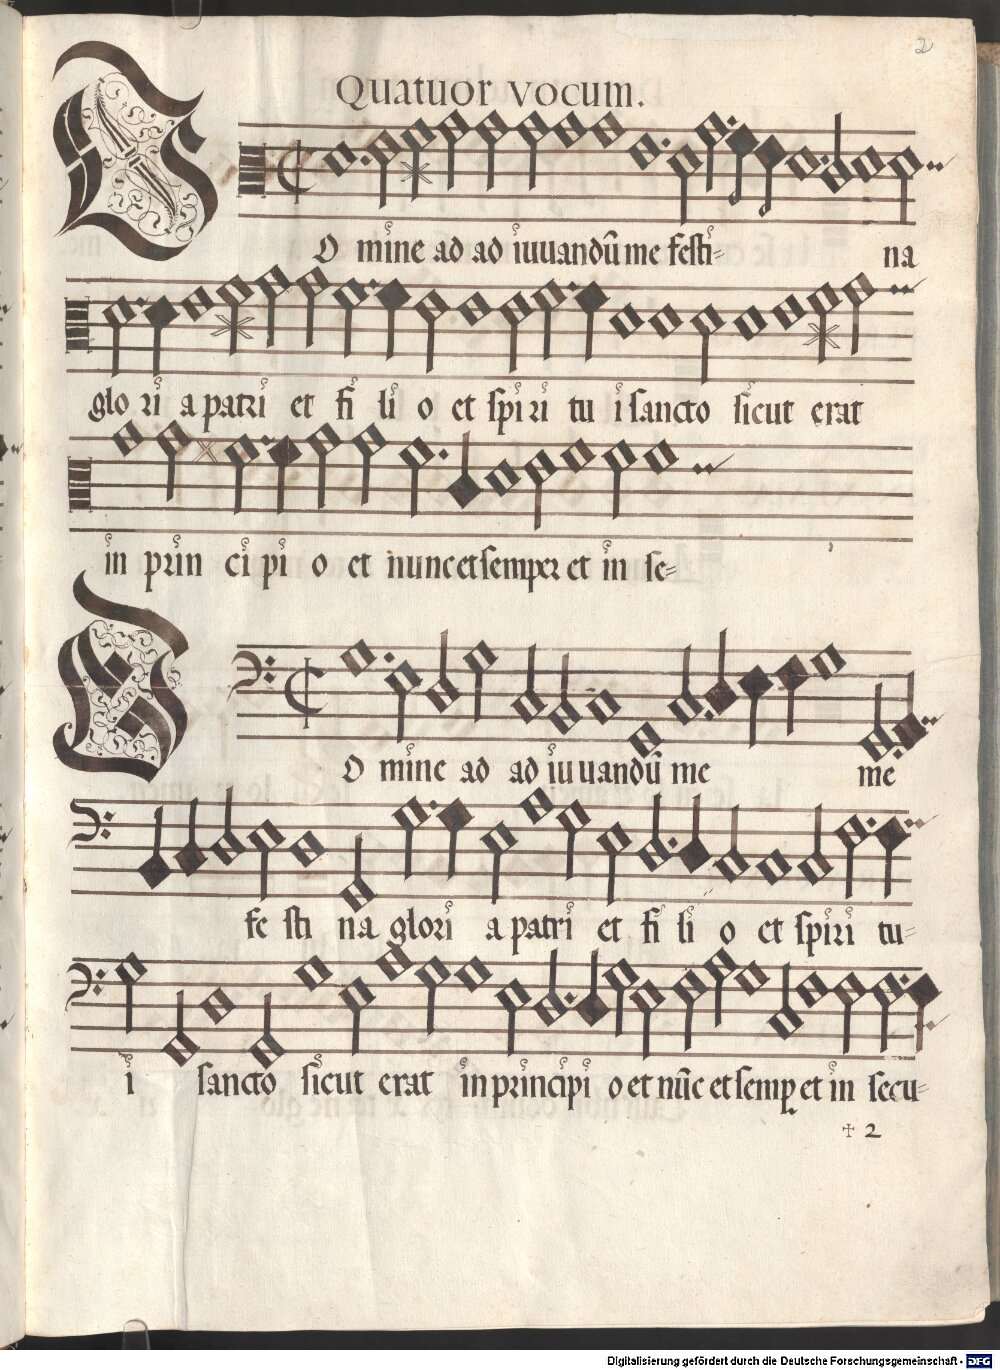 2
Quatuor vocum.
Domine ad adiuuandũ me festi= na
glori a patri et fi li o et spiri tu i sancto sicut erat
in prin ci pi o et nunc et semper et in se=
Domine ad ad iuuandũ me me
fe sti na glori a patri et fi li o et spiri tu=
i sancto sicut erat in principi o et nũc et semp et in secu=
+ 2
Digitalisierung gefördert durch die Deutsche Forschungsgemeinschaft - DFG